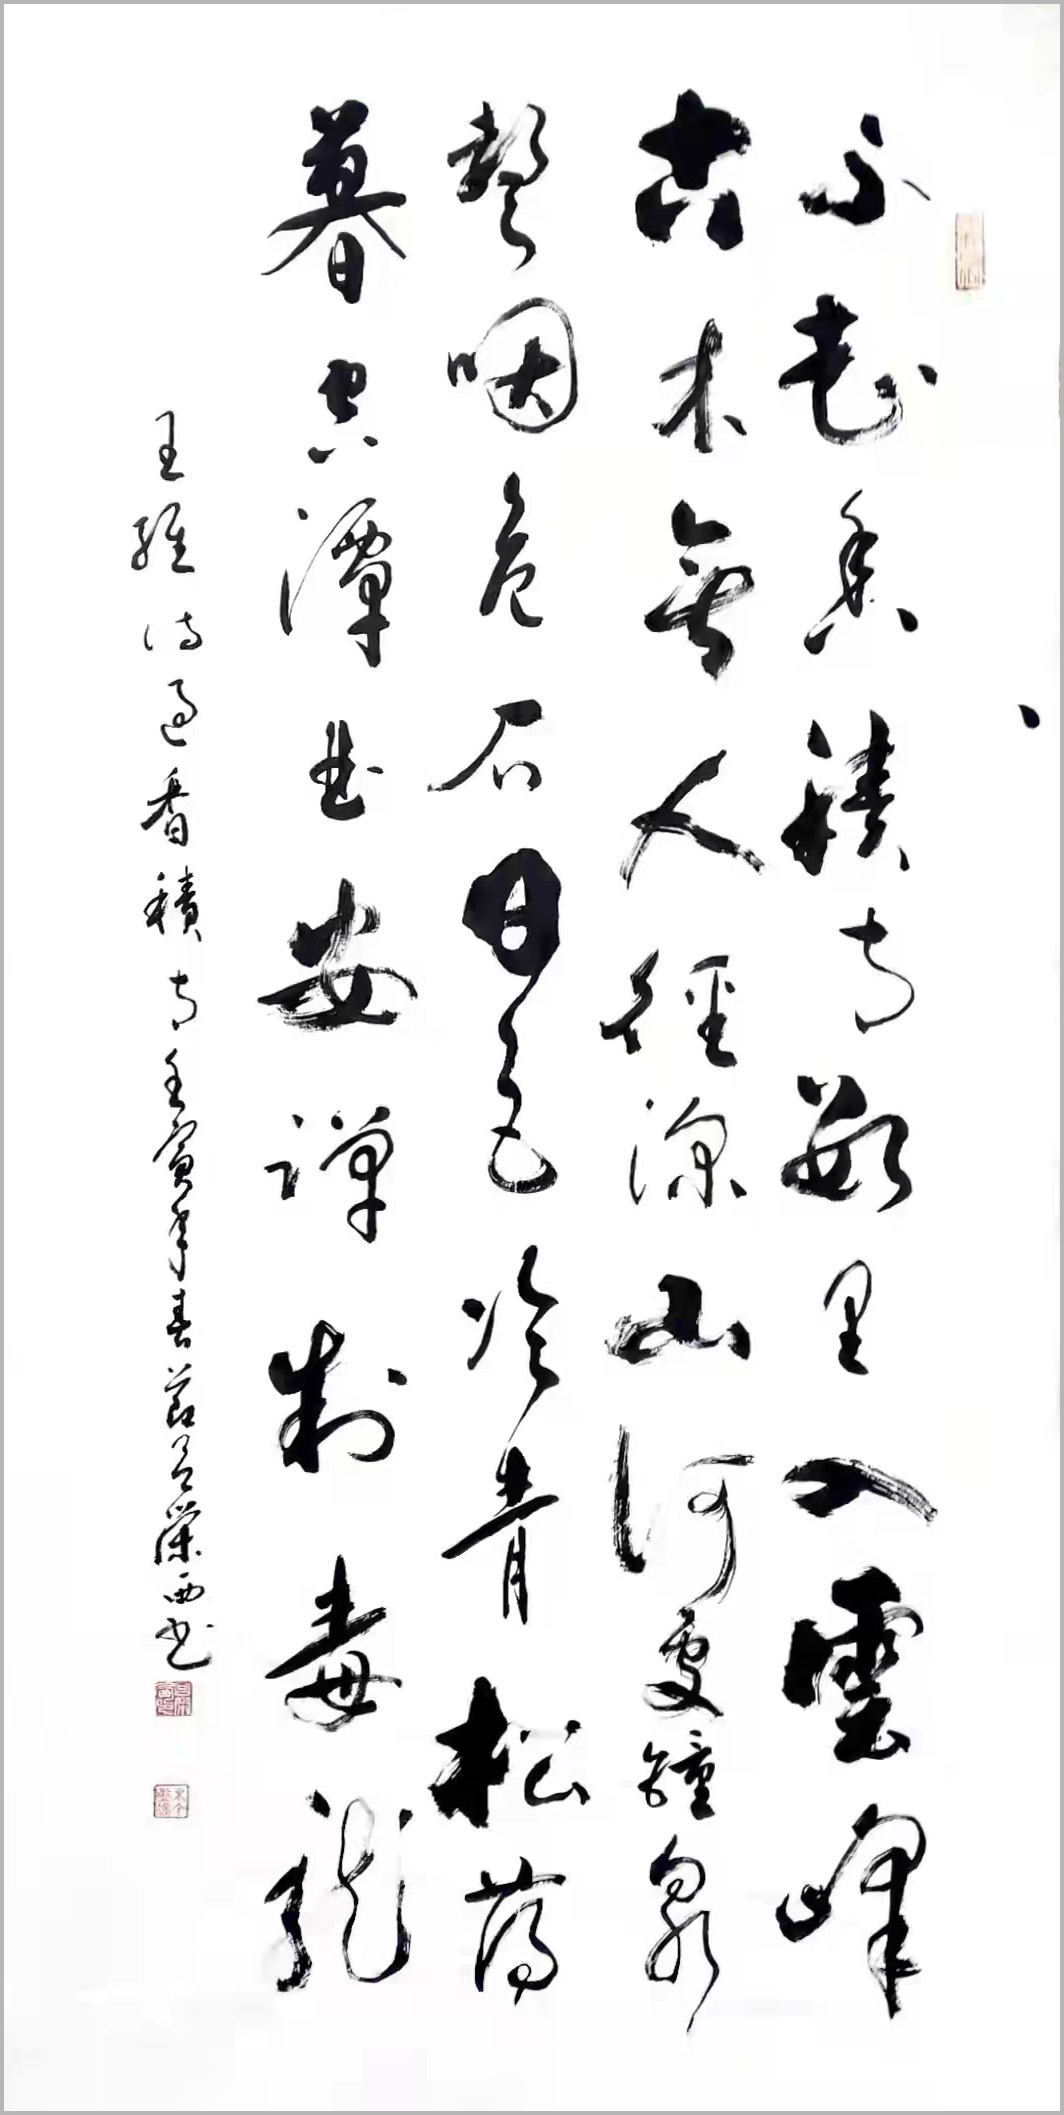 不知香積寺數里入雲峰
古木無人徑深山何處鐘泉
聲咽危石日色冷青松薄
暮空潭曲安禪制毒龍
王維詩過香積寺壬寅年春節吕榮西书